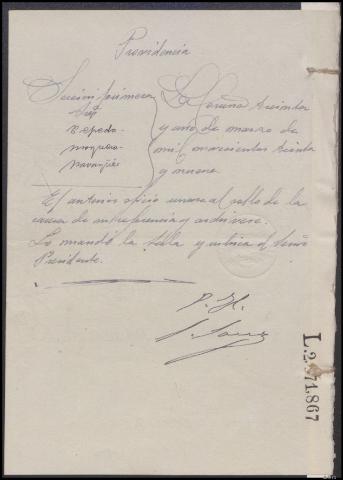 Providencia
Sección primera
Srs.
Cepeda
Noguera
La Coruña treinta
y uno de marzo de
mil novecientos treinta
y nueve
El anterior oficio unase al rollo de la
causa de su referencia y archivese.
Lo mandó la Sala y rubrica el Señor
Presidente.
P. H.
L.2.971.867